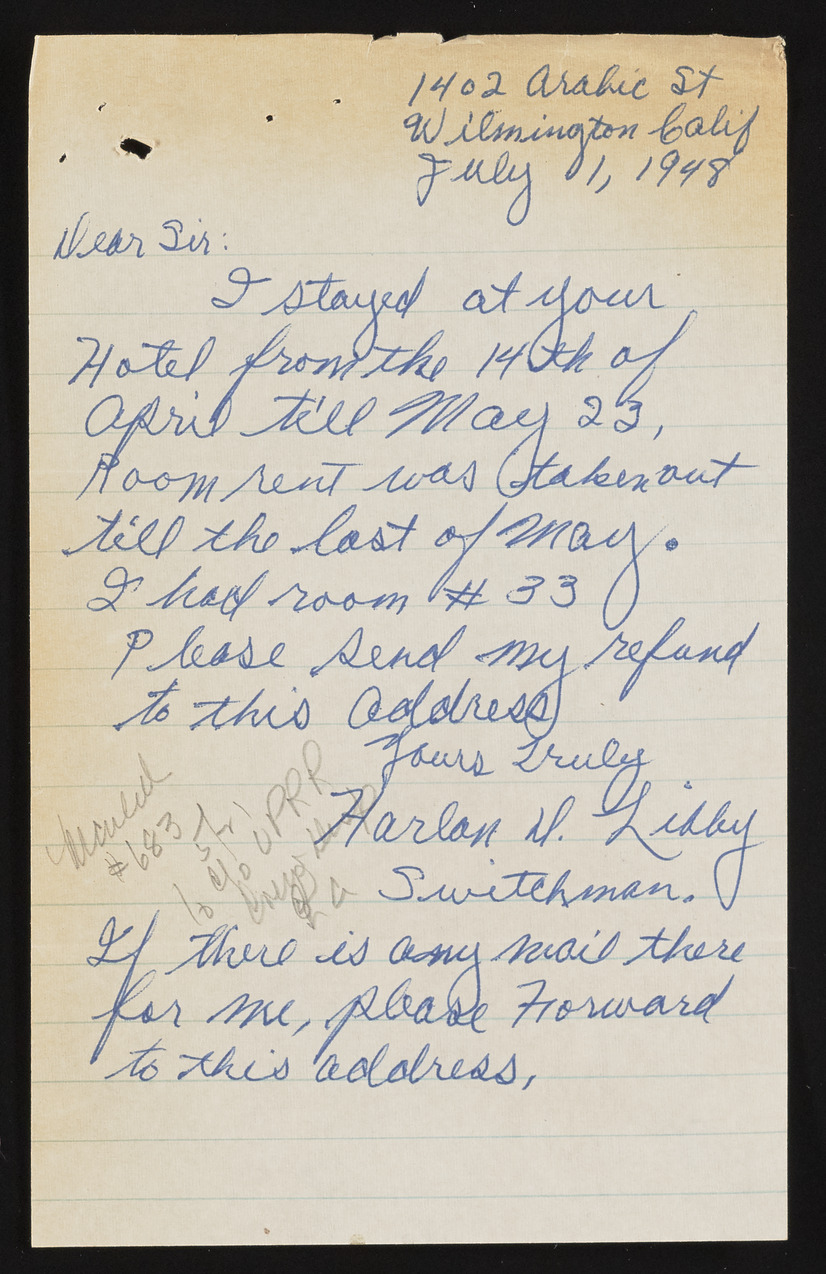 1402 Arabic St
Wilmington Calif
July 1, 1948
Dear Sir:
I stayed at your
Hotel from the 14th of
April till May 23,
Room rent was taken out
till the last of May.
I had room # 33
Please send my refund
to this address
Yours Truly
Harlan D. Libby
Switchman.
#683
c/o UPRR
L a
If there is any mail there
for me, please Forward
to this address,